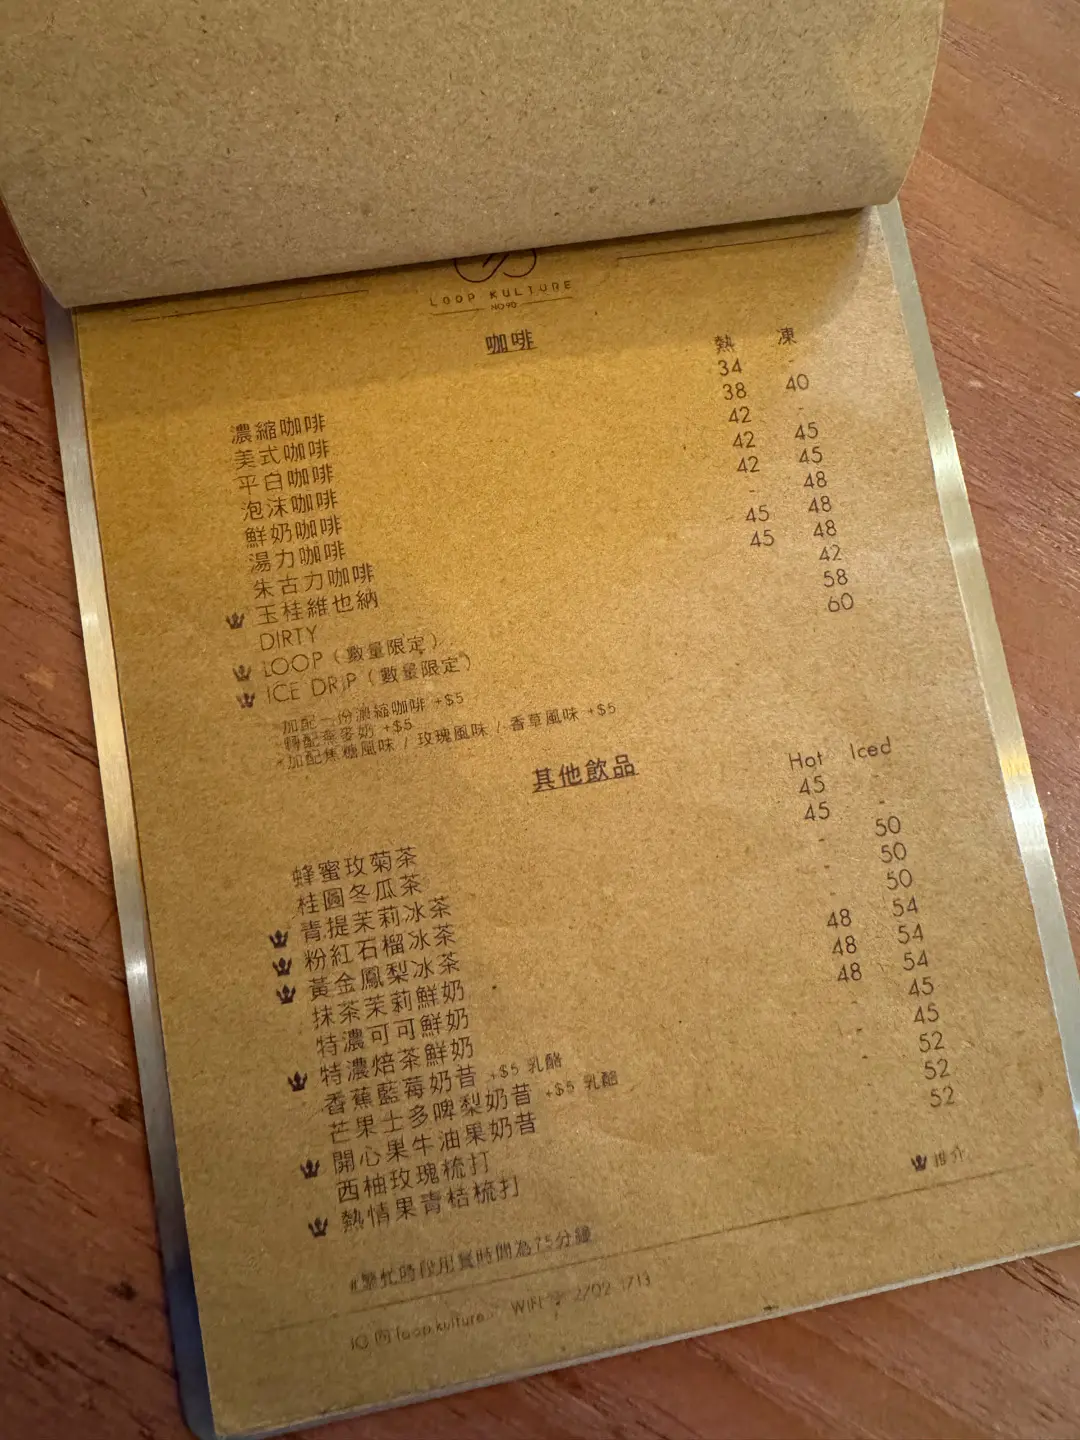 LOOP KULTURE
咖啡 熱 凍
濃縮咖啡 34 -
美式咖啡 38 40
平白咖啡 42 -
泡沫咖啡 42 45
鮮奶咖啡 42 45
湯力咖啡 - 48
朱古力咖啡 45 48
玉桂維也納 45 48
DIRTY 42
LOOP (數量限定) 58
ICE DRIP (數量限定) 60
加配一份濃縮咖啡 +$5
轉配燕麥奶 +$5
加配焦糖風味 / 玫瑰風味 / 香草風味 +$5
其他飲品 Hot Iced
蜂蜜玫菊茶 45 -
桂圓冬瓜茶 45 -
青提茉莉冰茶 - 50
粉紅石榴冰茶 - 50
黃金鳳梨冰茶 - 50
抹茶茉莉鮮奶 48 54
特濃可可鮮奶 48 54
特濃焙茶鮮奶 48 54
香蕉藍莓奶昔 +$5 乳酪 - 45
芒果士多啤梨奶昔 +$5 乳酪 - 45
開心果牛油果奶昔 52
西柚玫瑰梳打 52
熱情果青桔梳打 52
推介
#繁忙時段用餐時間為75分鐘
IG loop.kulture WIFI 2702 1713